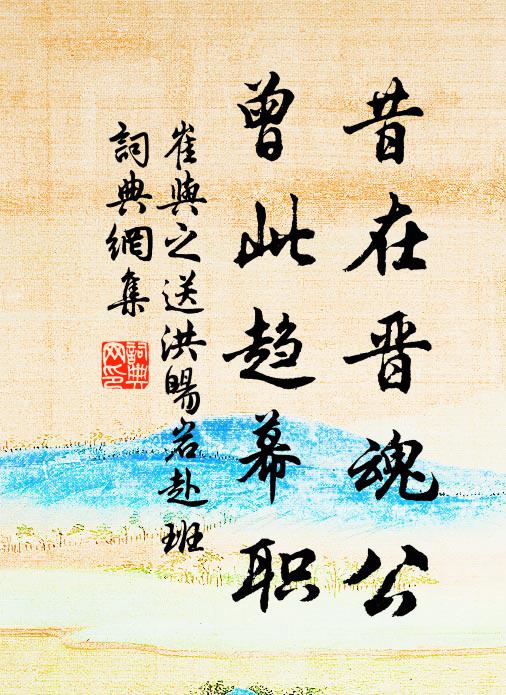 昔在晋魂公
曾此趋幕职
崔與之送洪賜岩赴班
詞典網集
詞典
网印